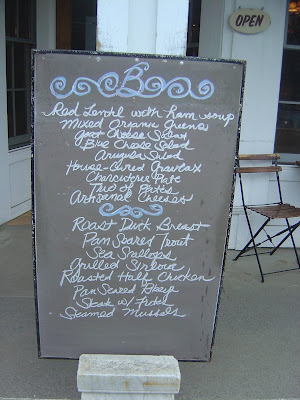 OPEN
B
Red Lentil with Ham soup
Mixed Organic Greens
Goat Cheese Salad
Blue Cheese Salad
Arugula Salad
House-Cured Gravlax
Charcuterie Plate
Two of Pates
Artisanal Cheeses
Roast Duck Breast
Pan Seared Trout
Sea Scallops
Grilled Sirloin
Roasted Half Chicken
Pan Seared Ribeye
Steak w/ Frites
Steamed Mussels